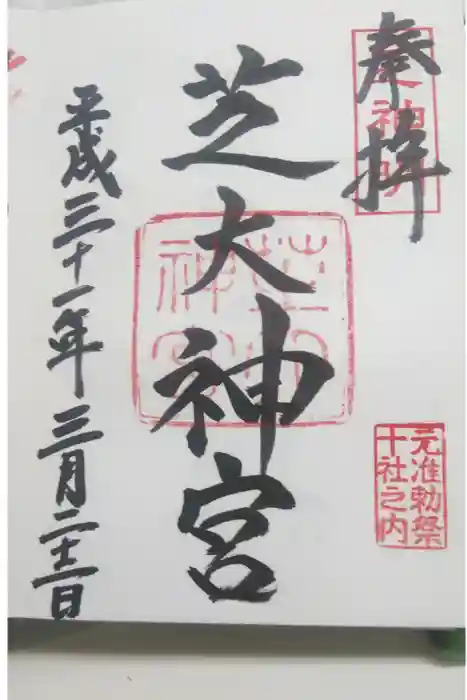 奉拝
芝神明
元准勅祭
十社之内
芝大神宮
平成三十一年三月二十二日